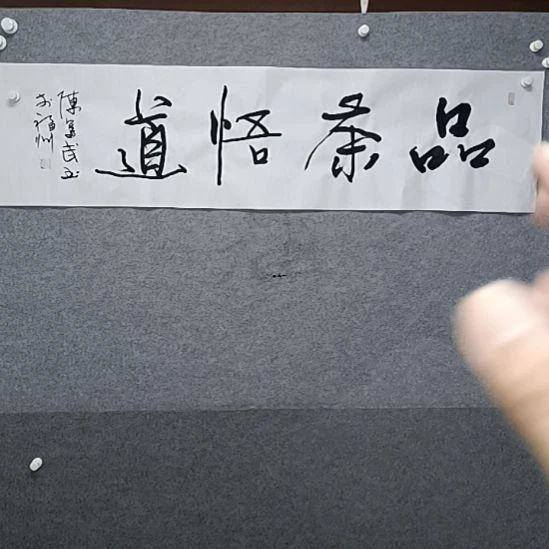 品茶悟道
陳
於福州